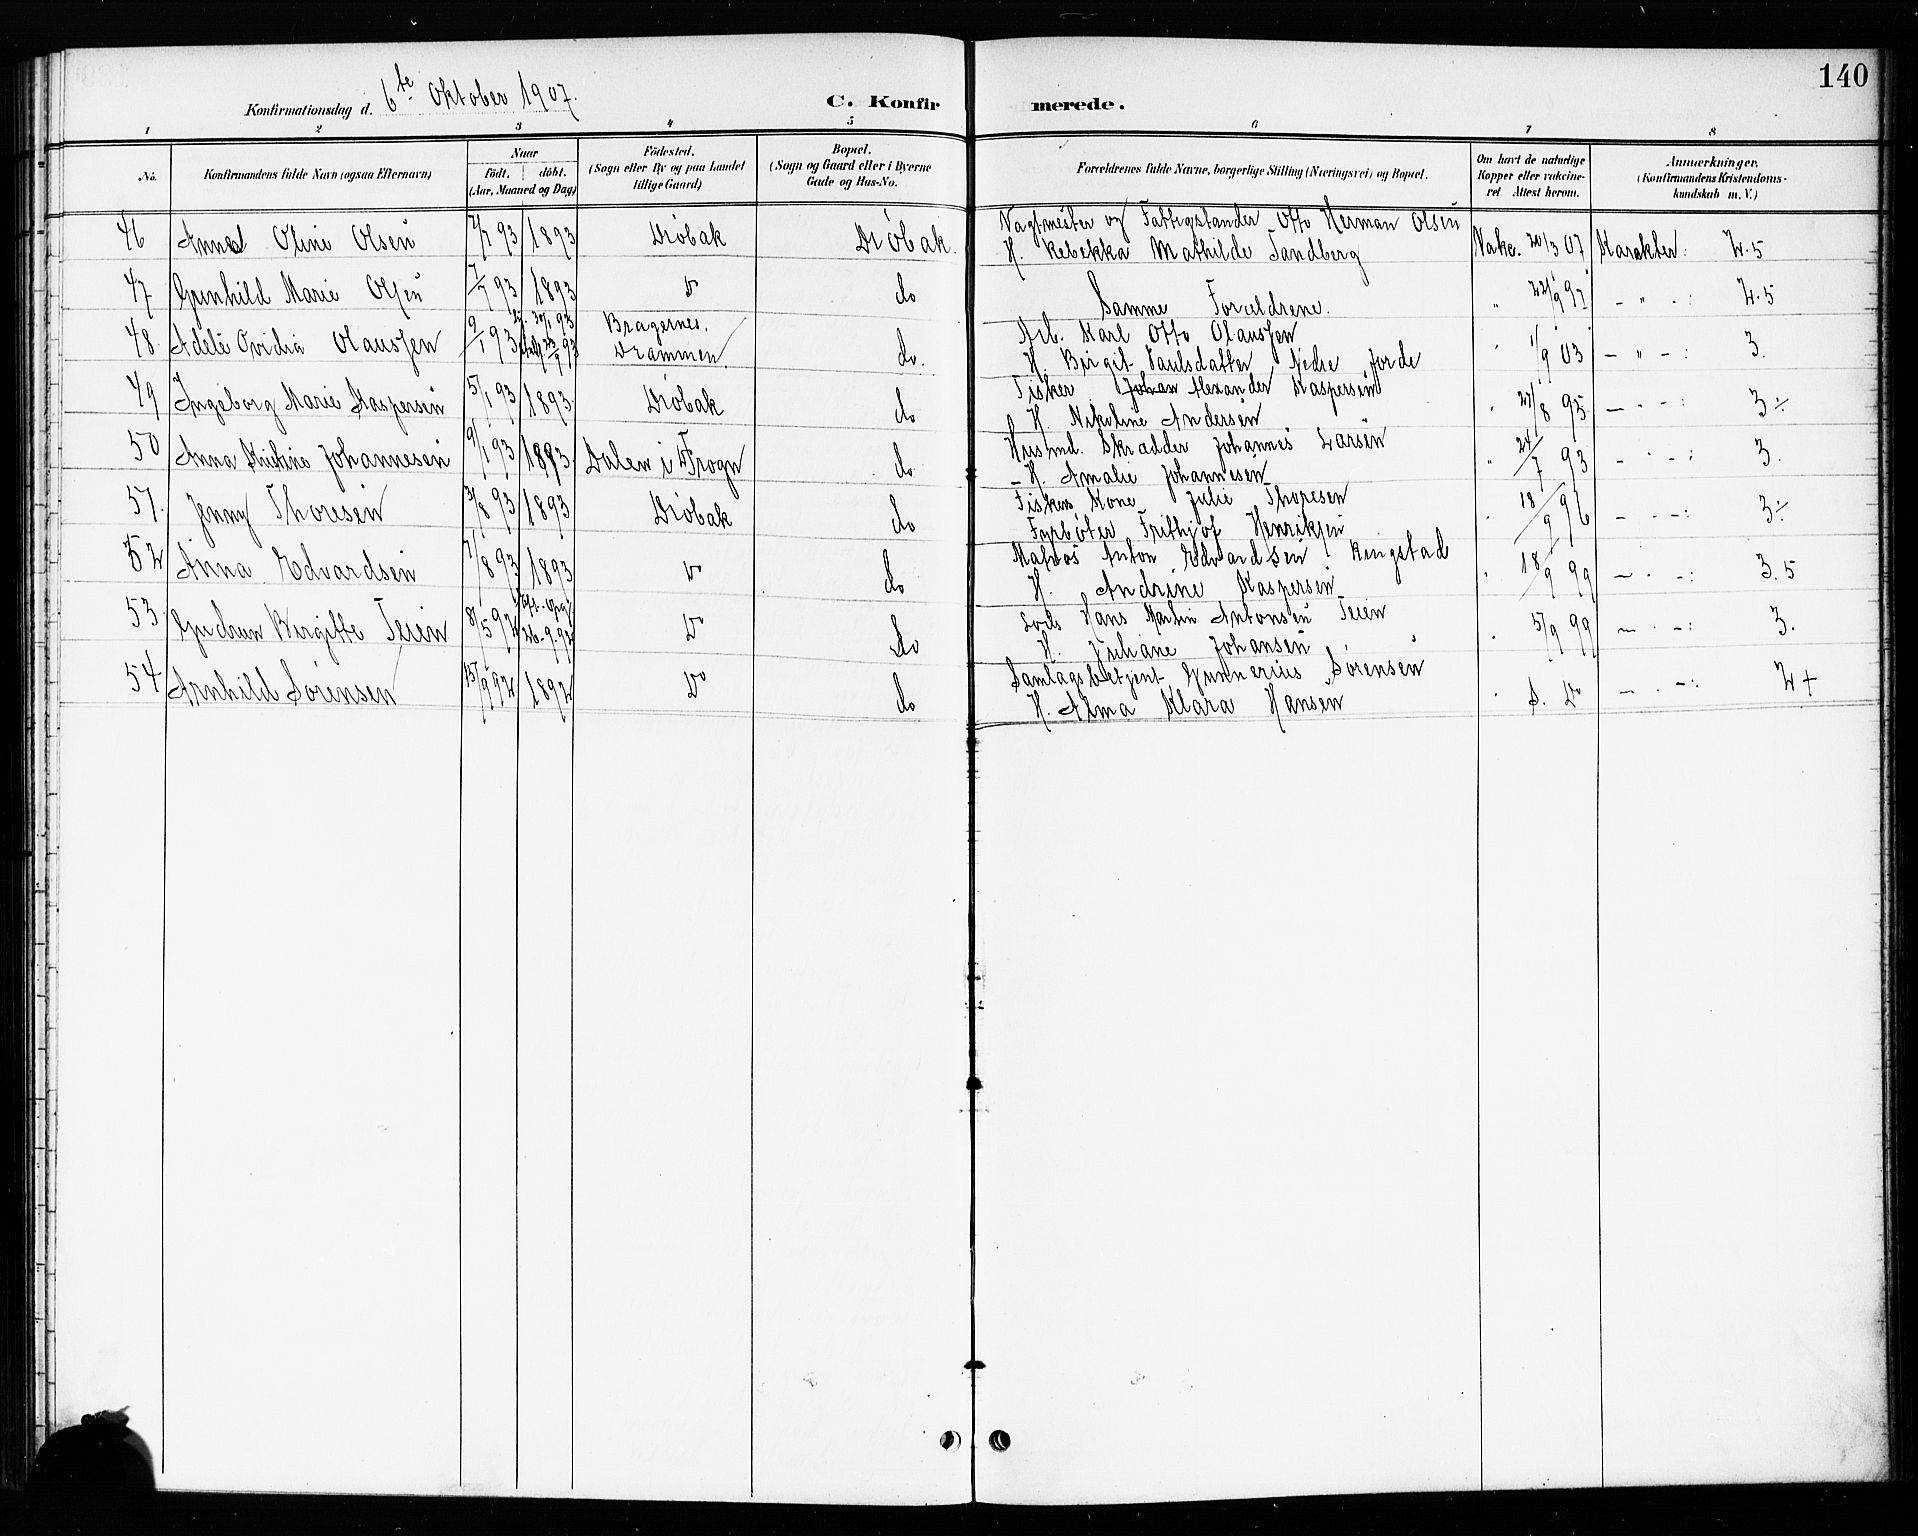 140
Konfirmationsdag d. 6te Oktober 1907.
C. Konfirmerede.
1 2 3 4 5 6 7 8
No.
Konfirmandens fulde Navn (ogsaa Efternavn)
Naar
födt. döbt.
(Aar, Maaned og Dag)
Födested.
(Sogn eller By og paa Landet
tillige Gaard)
Bopæl.
(Sogn og Gaard eller i Byerne
Gade og Hus-No.
Forældrenes fulde Navne, borgerlige Stilling (Næringsvei) og Bopæl.
Om havt de naturlige
Kopper eller vakcine-
ret. Attest herom.
Anmærkninger.
(Konfirmandens Kristendoms-
kundskab m. V.)
46 Anna Oline Olsen 7/7 93 1893 Dröbak Dröbak. Vagtmester og Fattigforstander Otto Herman Olsen
H. Rebekka Mathilde Sandberg Vakc. 20/3 07 Karakter: 2.5
47 Gunhild Marie Olsen 7/7 93 1893 Do do Samme Forældrene. " 22/9 97 - " - : 2.5
48 Adele Ovidia Olaussen 9/1 93 Bragernes. Drammen. do. Arb. Karl Otto Olaussen
H. Birgit Paulsdatter Nedre Jorde " 1/9 03 - " - : 3.
49 Ingeborg Marie Kaspersen 5/1 93 1893. Dröbak do Fisker Johan Alexander Kaspersen
H. Nikoline Andersen " 27/8 95 - " - : 3÷
50 Anna Kristine Johannesen 9/1 93 1893. Dalen i Frogn do Husmd. Skrædder Johannes Larsen
- H. Amalie Johannesen " 24/7 93 - " - : 3.
51. Jenny Thoresen 31/8 93 1893 Dröbak do Fiskers Kone Julie Thoresen
Fyrböter Frithjof Henriksen " 18/9 96 - " - : 3÷
52 Anna Edvardsen 7/8 93 1893 Do do Matros Anton Edvardsen Ringstad
H. Andrine Kaspersen " 18/9 99 - " - : 3.5
53. Gudrun Birgitte Teien 8/5 92 26-9-92 Do do Lods Hans Martin Antonsen Teien
H. Juliane Johansen " 5/9 99 - " - : 3.
54 Arnhild Sörensen 15/9 92 1892 Do do Samlagsbetjent Gunnerius Sörensen
H. Alma Klara Hansen " D. Do - " - : 2+